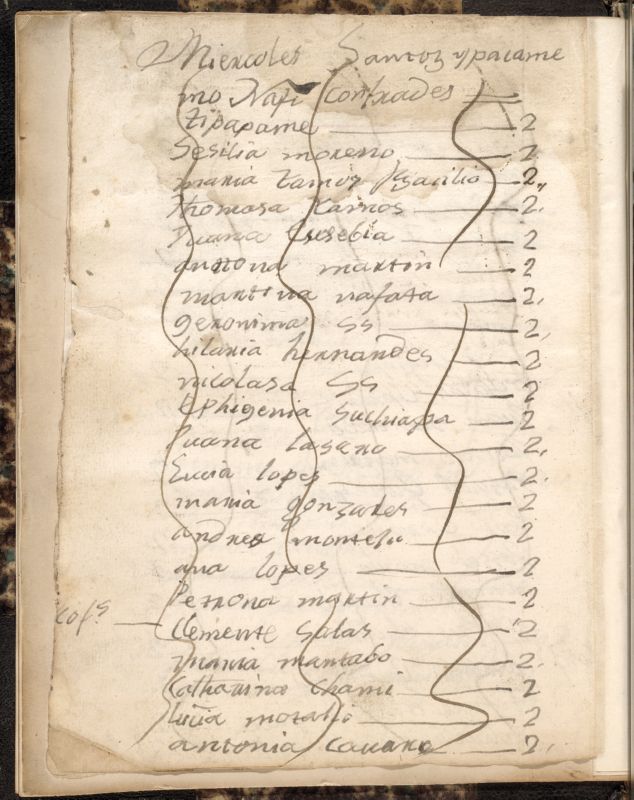 Miercoles Santoz ypacame
mo Napi Confrades
tipapame 2
Sesilia moreno 2
maria Ramos Bacilio 2
Thomasa Ramos 2
Juana Eusebia 2
antona martin 2
martina nafata 2
geronima SS 2
hilaria hernandes 2
nicolasa SS 2
Ephigenia Suchiapa 2
Juana Lasaro 2
Lucia lopes 2
maria gonzales 2
andrea montesi 2
ana lopes 2
Petrona martin 2
cofs Clemente Salas 2
maria mantado 2
Catharina Chami 2
lucia 2
antonia 2